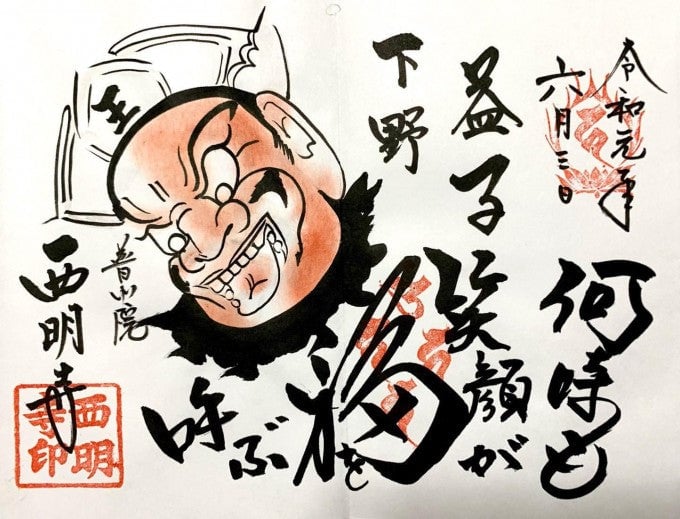 令和元年
六月三日
何時も
益子
笑顔が
下野
福を
呼ぶ
王
普門院
西明寺
西明寺印